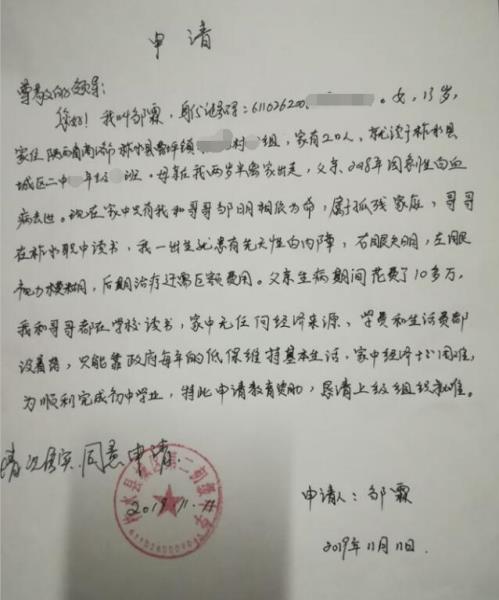 申请
尊敬的领导：
您好！我叫邹霖，身份证号码：61102620。女，13岁，
家住陕西省商洛市柞水县曹坪镇村组，家有2口人，就读于柞水县
城区二中年级班。母亲在我两岁半离家出走，父亲2018年因急性白血
病去世。现在家中只有我和哥哥邹明相依为命，属于孤残家庭，哥哥
在柞水职中读书，我一出生就患有先天性白内障，右眼失明，左眼
视力模糊，后期治疗还需巨额费用。父亲生病期间花费了10多万，
我和哥哥都在学校读书，家中无任何经济来源、学费和生活费都
没着落，只能靠政府每年的低保维持基本生活，家中经济十分困难，
为顺利完成初中学业，特此申请教育资助，恳请上级组织批准。
情况属实，同意申请。
柞水县城区第二初级中学
2019.11.11
申请人：邹霖
2019年11月11日.